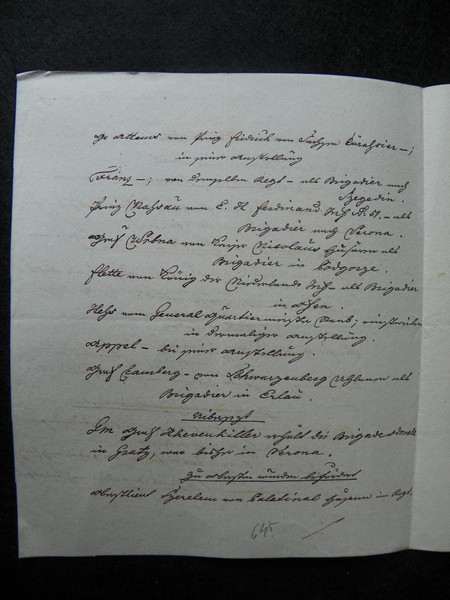 von Prinz Fridrich von Sachsen Cürassier –;
in seiner Anstellung
Franz –; von demselben Regt – als Brigadier nach
Szegedin.
Prinz von E. H. Ferdinand Inf. Rt. – als
Brigadier nach Verona.
Graf Wrbna von Kaiser Nicolaus Husaren als
Brigadier in Podgorze.
von König der Niederlande Infr. als Brigadier
in Ofen.
Hess vom General Quartiermeister Staab; einstweilen
in dermaliger Anstellung.
Appel – bei seiner Anstellung.
Graf Lamberg – von Schwarzenberg Uhlanen als
Brigadier in Erlau.
Übersezt
Gm Graf Khevenhiller erhält die Brigade
in Gratz, was bisher in Verona.
Zu Obersten wurden befördert
Obristlieut von Palatinal Husaren im Regt.
645.